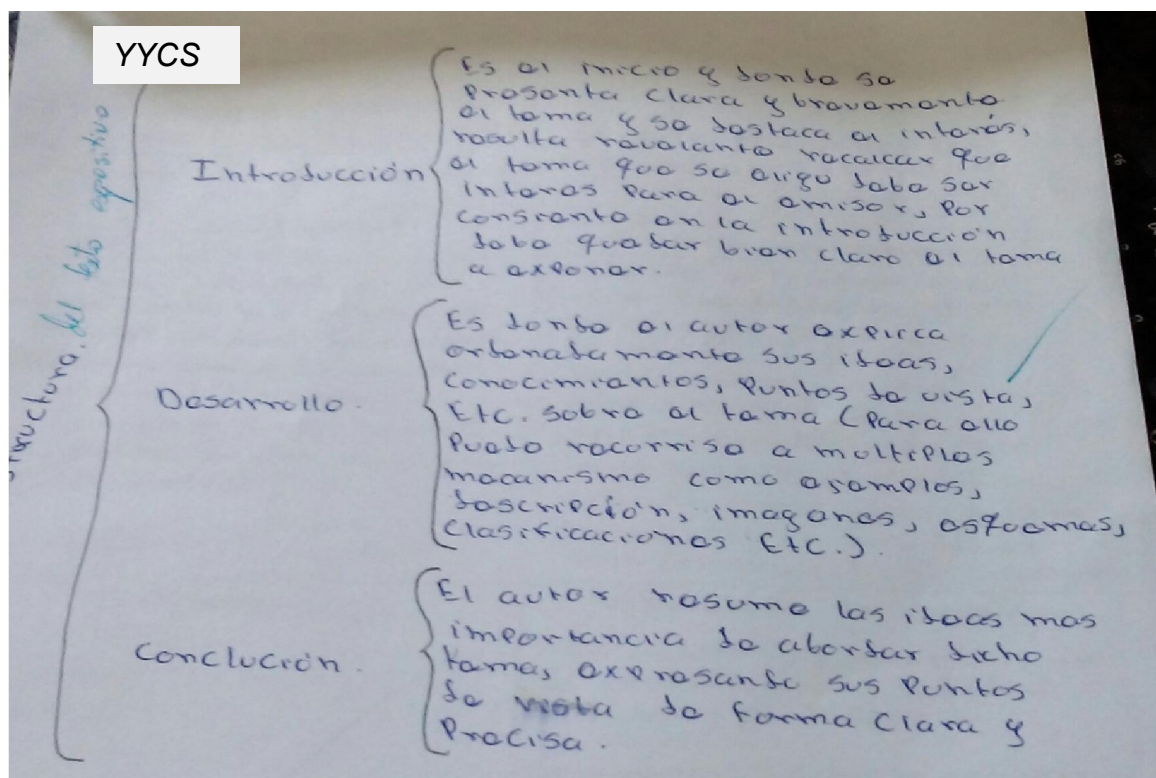 YYCS
Estructura del texto expositivo
Introducción
Es el inicio y donde se
Presenta clara y brevemente
el tema y se destaca el interés,
resulta revelante recalcar que
el tema que se elige debe ser
interes Para el emisor, Por
consiente en la introducción
debe quedar bien claro el tema
a exponer.
Desarrollo.
Es donde el autor explica
ordenadamente sus ideas,
conocimientos, Puntos de vista,
Etc. sobre el tema (Para ello
Puede recorriso a multiples
mecanismo como esemplos,
descripción, imagenes, esquemas,
Clasificaciones Etc.).
Conclución.
El autor resume las ideas mas
importancia de abordar dicho
tema, expresando sus Puntos
de vista de forma clara y
Precisa.